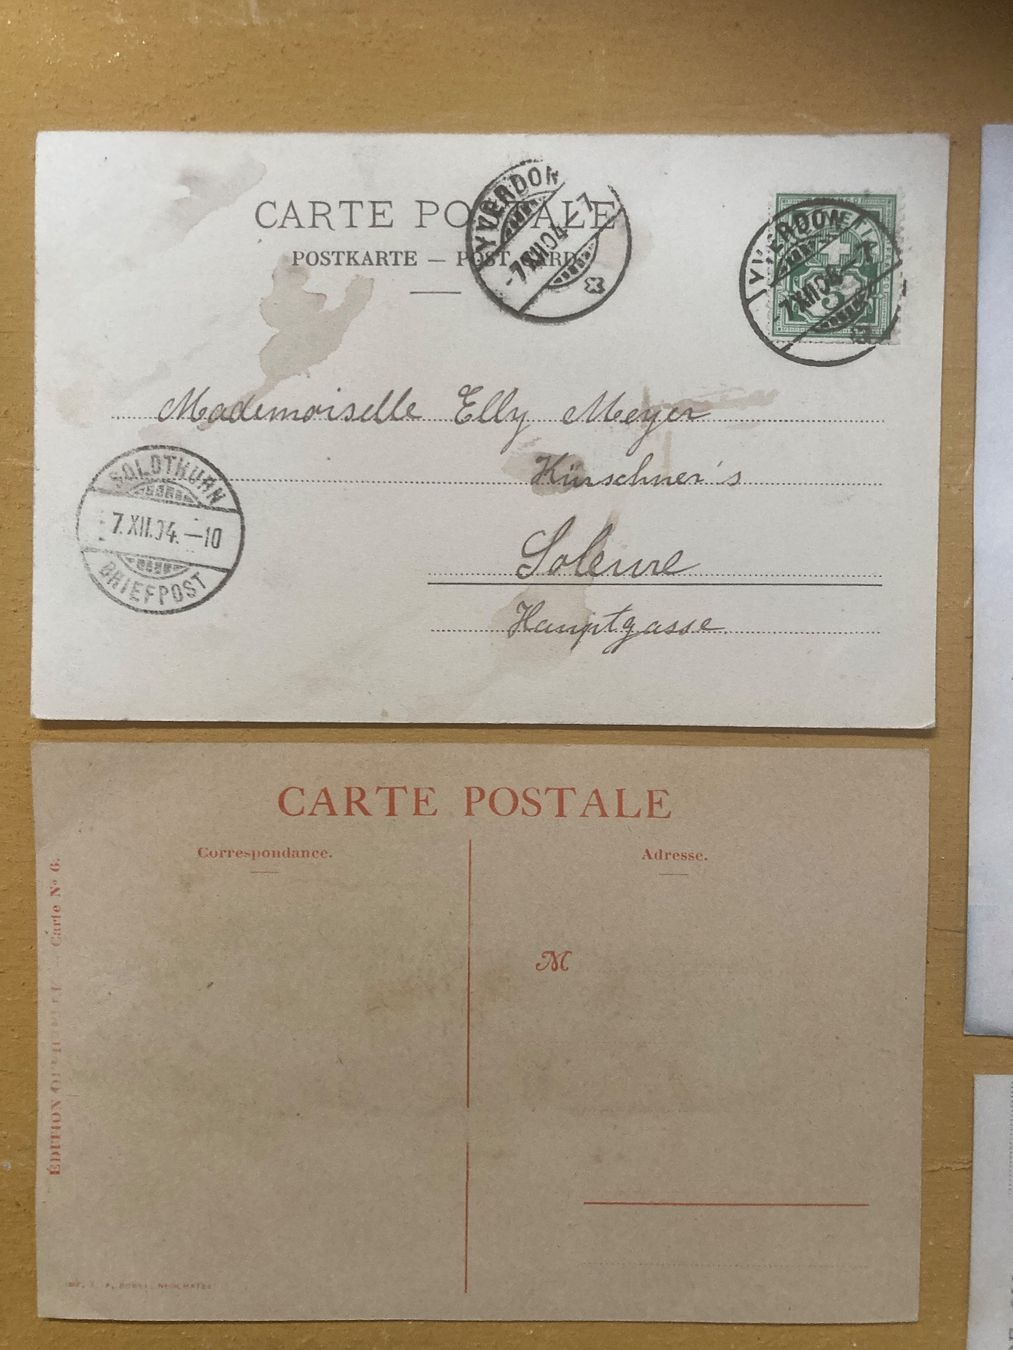 CARTE POSTALE
POSTKARTE — POST CARD
YVERDON
-7.XII.04-7
YVERDON
-7.XII.04-7
5
Mademoiselle Elly Meyer
Kürschner's
Soleure
Hauptgasse
SOLOTHURN
7.XII.04.-10
BRIEFPOST
CARTE POSTALE
Correspondance.
Adresse.
M
ÉDITION OFFICIELLE — Carte No 6.
NEUCHATEL